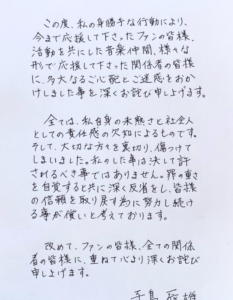 この度、私の身勝手な行動により、
今まで応援して下さったファンの皆様、
活動を共にした音楽仲間、様々な
形で応援して下さった関係者の皆様
に、多大なるご心配とご迷惑をおか
けしました事を深くお詫び申し上げます。
全ては、私自身の未熟さと社会人
としての責任感の欠如によるものです。
そして、大切な方々を裏切り、傷つけて
しまいました。私のした事は決して許
されるべき事ではありません。罪の重さ
を自覚すると共に深く反省をし、皆様
の信頼を取り戻す為に努力し続け
る事が償いと考えております。
改めて、ファンの皆様、全ての関係
者の皆様に、重ねて心より深くお詫び
申し上げます。